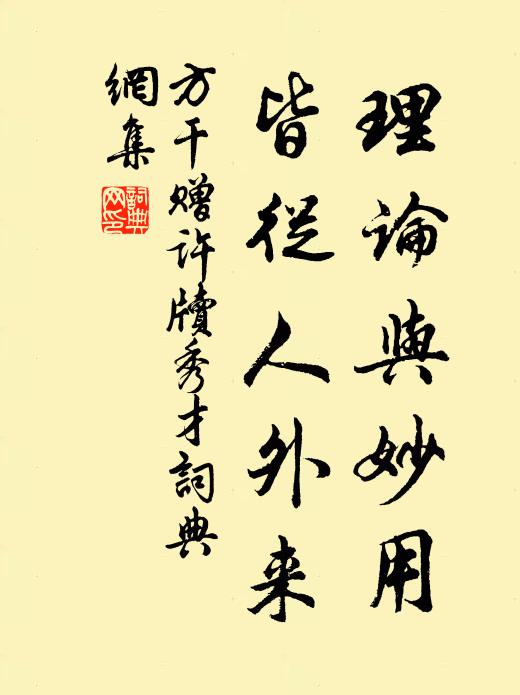 理論與妙用
皆從人外来
方干赠许牍秀才詞典
網集
詞典網印